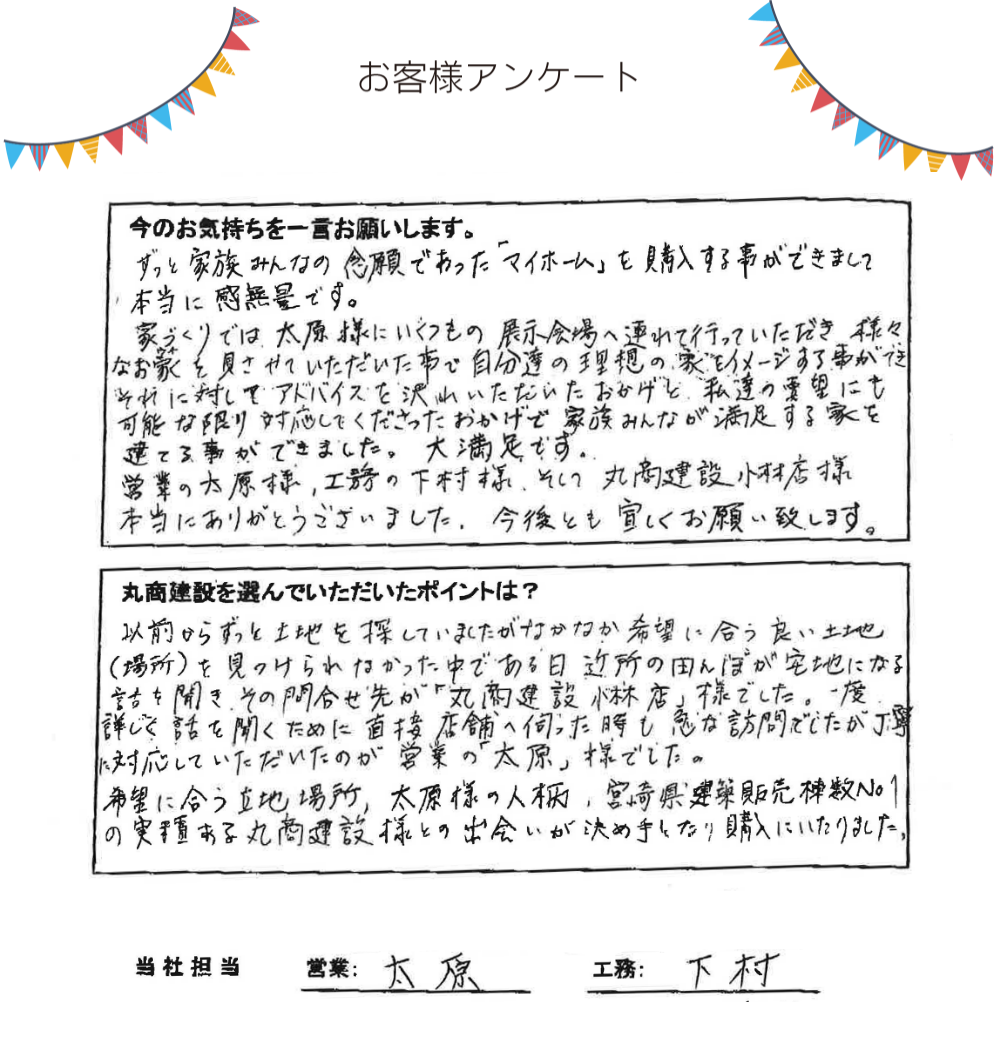 お客様アンケート
今のお気持ちを一言お願いします。
ずっと家族みんなの念願であった「マイホーム」を購入する事ができまして
本当に感無量です。
家づくりでは太原様にいくつもの展示会場へ連れて行っていただき様々
なお家を見させていただいた事で自分達の理想の家をイメージする事ができ
それに対してアドバイスを沢山いただいたおかげと、私達の要望にも
可能な限り対応してくださったおかげで家族みんなが満足する家を
建てる事ができました。大満足です。
営業の太原様、工務の下村様、そして丸商建設小林店様
本当にありがとうございました。今後とも宜しくお願い致します。
丸商建設を選んでいただいたポイントは？
以前からずっと土地を探していましたがなかなか希望に合う良い土地
(場所)を見つけられなかった中である日近所の田んぼが宅地になる
話を聞き、その問合せ先が「丸商建設小林店」様でした。一度、
詳しく話を聞くために直接店舗へ伺った時も急な訪問でしたが丁寧
に対応していただいたのが営業の「太原」様でした。
希望に合う立地場所、太原様の人柄、宮崎県建築販売棟数No1
の実積ある丸商建設様との出会いが決め手となり購入にいたりました。
当社担当 営業: 太原 工務: 下村